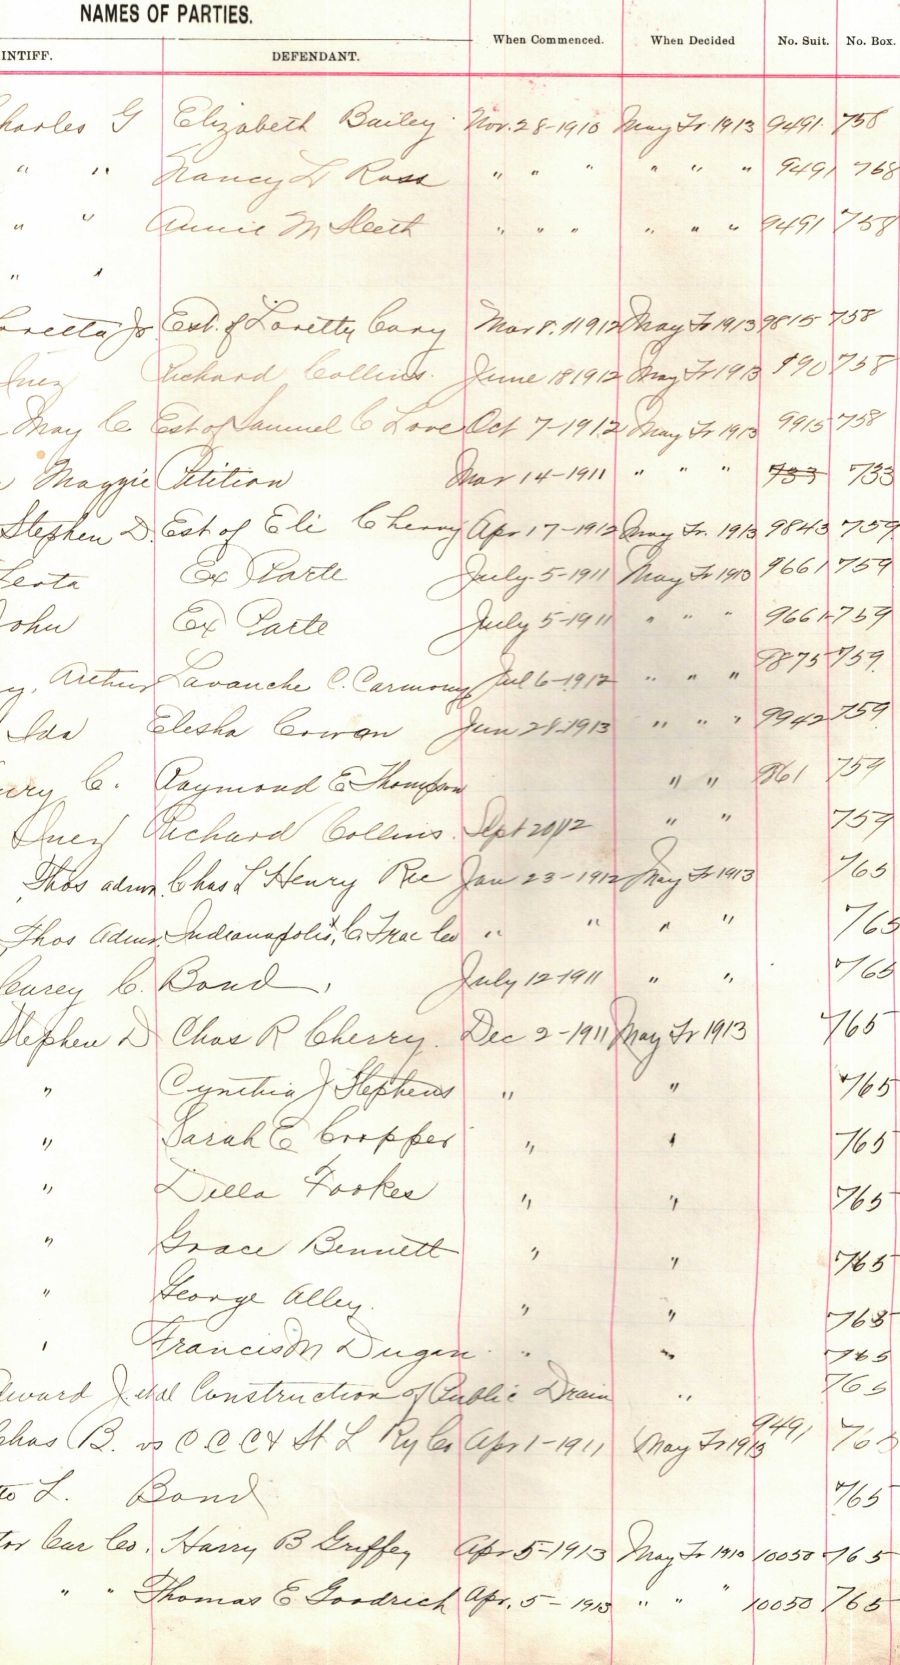 NAMES OF PARTIES.
INTIFF. DEFENDANT. When Commenced. When Decided No. Suit. No. Box.
harles G Elizabeth Bailey Nov. 28-1910 May Tr. 1913 9491 758
" " Nancy L Ross " " " " " " 9491 768
" " Annie M Sleeth " " " " " " 9491 758
" "
oretta Jr Est. of Loretty Cory Mar 8. 1912 May Tr 1913 9815 758
Inez Richard Collins. June 18 1912 May Tr 1913 990 758
May C Est of Samuel C Love Oct 7-1912 May Tr 1913 9915 758
Maggie Petition Mar 14-1911 " " " 733 733
Stephen D. Est of Eli Cherry Apr 17-1912 May Tr. 1913 9843 759
Ex Parte July-5-1911 May Tr 1913 9661 759
ohn Ex Parte July 5-1911 " " " 9661 759
y, Arthur Lavanche C. Carmony Jul 6-1912 " " " 9875 759
Ida Elesha Cowan Jun 28-1913 " " " 9942 759
ury C. Raymond E Thompson " " 961 759
Inez Richard Collins. Sept 20/12 " " 759
Thos admr Chas L Henry Rec Jan 23-1912 May Tr 1913 765
Thos Admr. Indianapolis, C. Trac Co " " " " 765
Carey C. Bond July 12-1911 " " 765
Stephen D Chas R Cherry. Dec 2-1911 May Tr 1913 765
" Cynthia J Stephens " " 765
" Sarah E Cropper " " 765
" Della Fookes " " 765
" Grace Bennett " " 765
" George Alley. " " 765
" Francis M Dugan " " 765
dward J. et al Construction of Public Drain " 765
Chas B. vs C C C & St L Ry Co Apr 1-1911 May Tr 1913 9491 765
to L. Bond 765
tor Car Co. Harry B Griffey Apr 5-1913 May Tr 1913 10050 765
" " Thomas E Goodrich Apr. 5-1913 " " " 10050 765